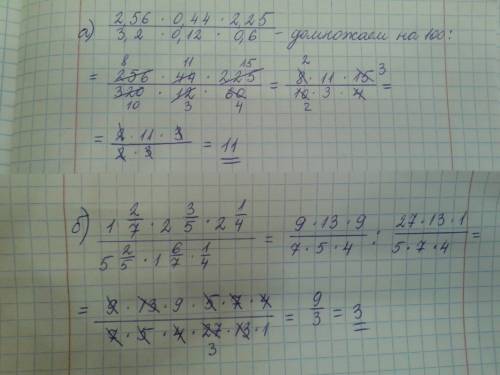 а) 2,56 · 0,44 · 2,25 / 3,2 · 0,12 · 0,6 - домножаем на 100:
= 256 · 44 · 225 / 320 · 12 · 60 = 8 · 11 · 15 / 10 · 3 · 4 =
8 11 15 2 3
10 3 4 2
= 2 · 11 · 3 / 2 · 3 = 11
б) 1 2/7 · 2 3/5 · 2 1/4 / 5 2/5 · 1 6/7 · 1/4 = 9 · 13 · 9 / 7 · 5 · 4 : 27 · 13 · 1 / 5 · 7 · 4 =
= 9 · 13 · 9 · 5 · 7 · 4 / 7 · 5 · 4 · 27 · 13 · 1 = 9/3 = 3
3